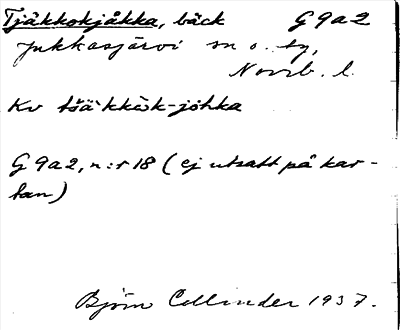 Tjäkkokjåkka, bäck G 9 a 2
Jukkasjärvi sn o. tg,
Norrb. l.
Kv tšä`kkɔk-johka
G 9 a 2, n:r 18 (ej utsatt på kar-
tan)
Björn Collinder 1937.